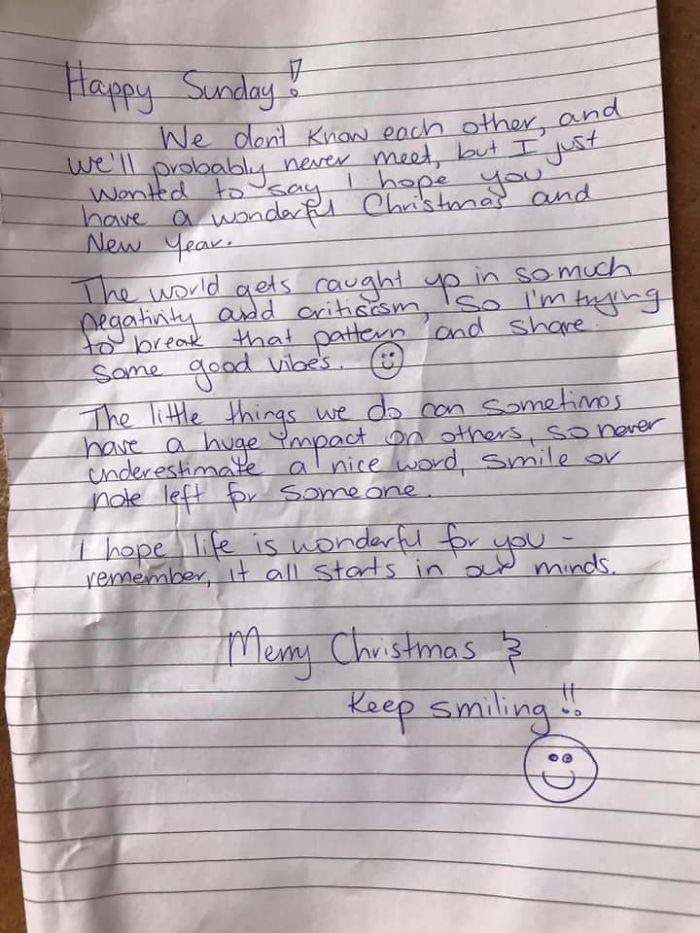 Happy Sunday!
We don't know each other, and
we'll probably never meet, but I just
wanted to say I hope you
have a wonderful Christmas and
New Year.
The world gets caught up in so much
negativity and critiscsm, so I'm trying
to break that pattern and share
some good vibes. ☺
The little things we do can sometimes
have a huge impact on others, so never
underestimate a nice word, smile or
note left for someone.
I hope life is wonderful for you -
remember, it all starts in our minds.
Merry Christmas &
Keep smiling!!